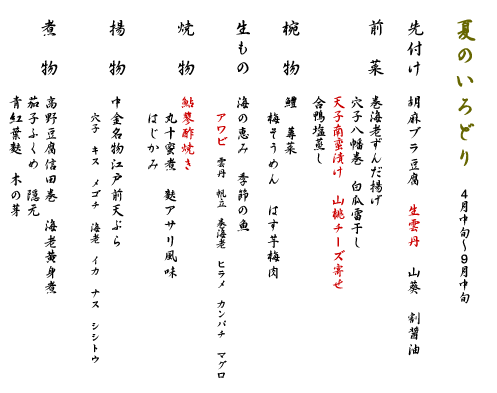 夏のいろどり 4月中旬～9月中旬
先付け 胡麻プラ豆腐 生雲丹 山葵 割醤油
前菜 巻海老ずんだ揚げ
穴子八幡巻 白瓜雷干し
天子南蛮漬け 山桃チーズ寄せ
合鴨塩蒸し
椀物 鱧 蓴菜
梅そうめん はす芋梅肉
生もの 海の恵み 季節の魚
アワビ 雲丹 帆立 巻海老 ヒラメ カンパチ マグロ
焼物 鮎蓼酢焼き
丸十蜜煮 麩アサリ風味
はじかみ
揚物 中金名物江戸前天ぷら
穴子 キス メゴチ 海老 イカ ナス シシトウ
煮物 高野豆腐信田巻 海老黄身煮
茄子ふくめ 隠元
青紅葉麩 木の芽